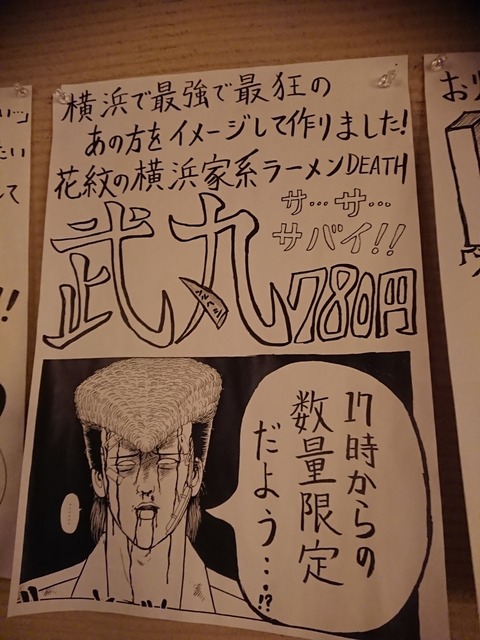 横浜で最強で最狂の
あの方をイメージして作りました!
花紋の横浜家系ラーメンDEATH
サ…サ…
サバイ!!
武丸
780円
17時からの
数量限定
だよう…!?
………